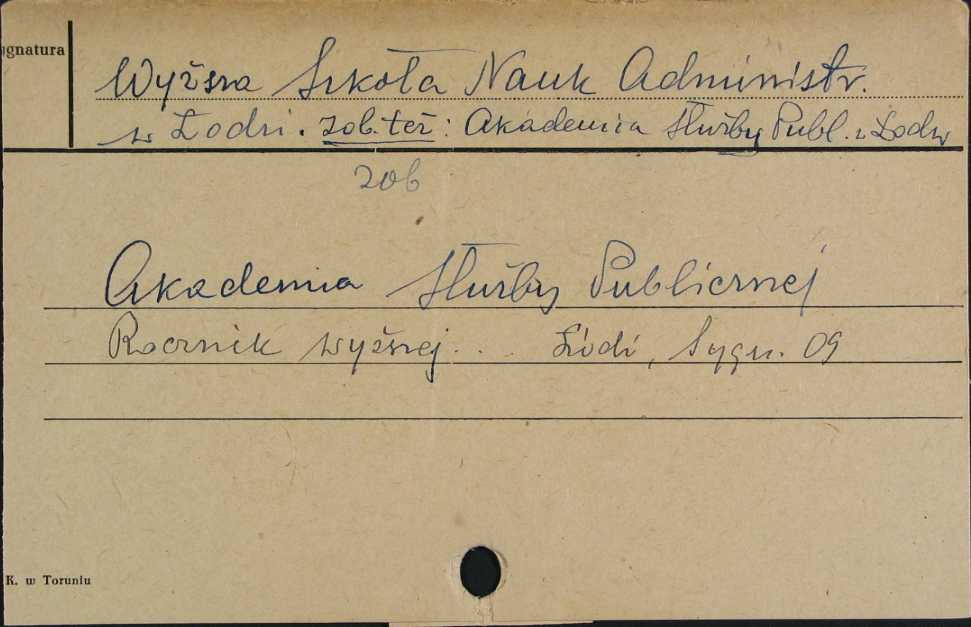 ygnatura
Wyższa Szkoła Nauk Administr.
w Łodzi. zob. też: Akademia Służby Publ. w Łodzi
zob
Akademia Służby Publicznej
Rocznik Wyższej... Łódź, Sygn. 09
K. w Toruniu